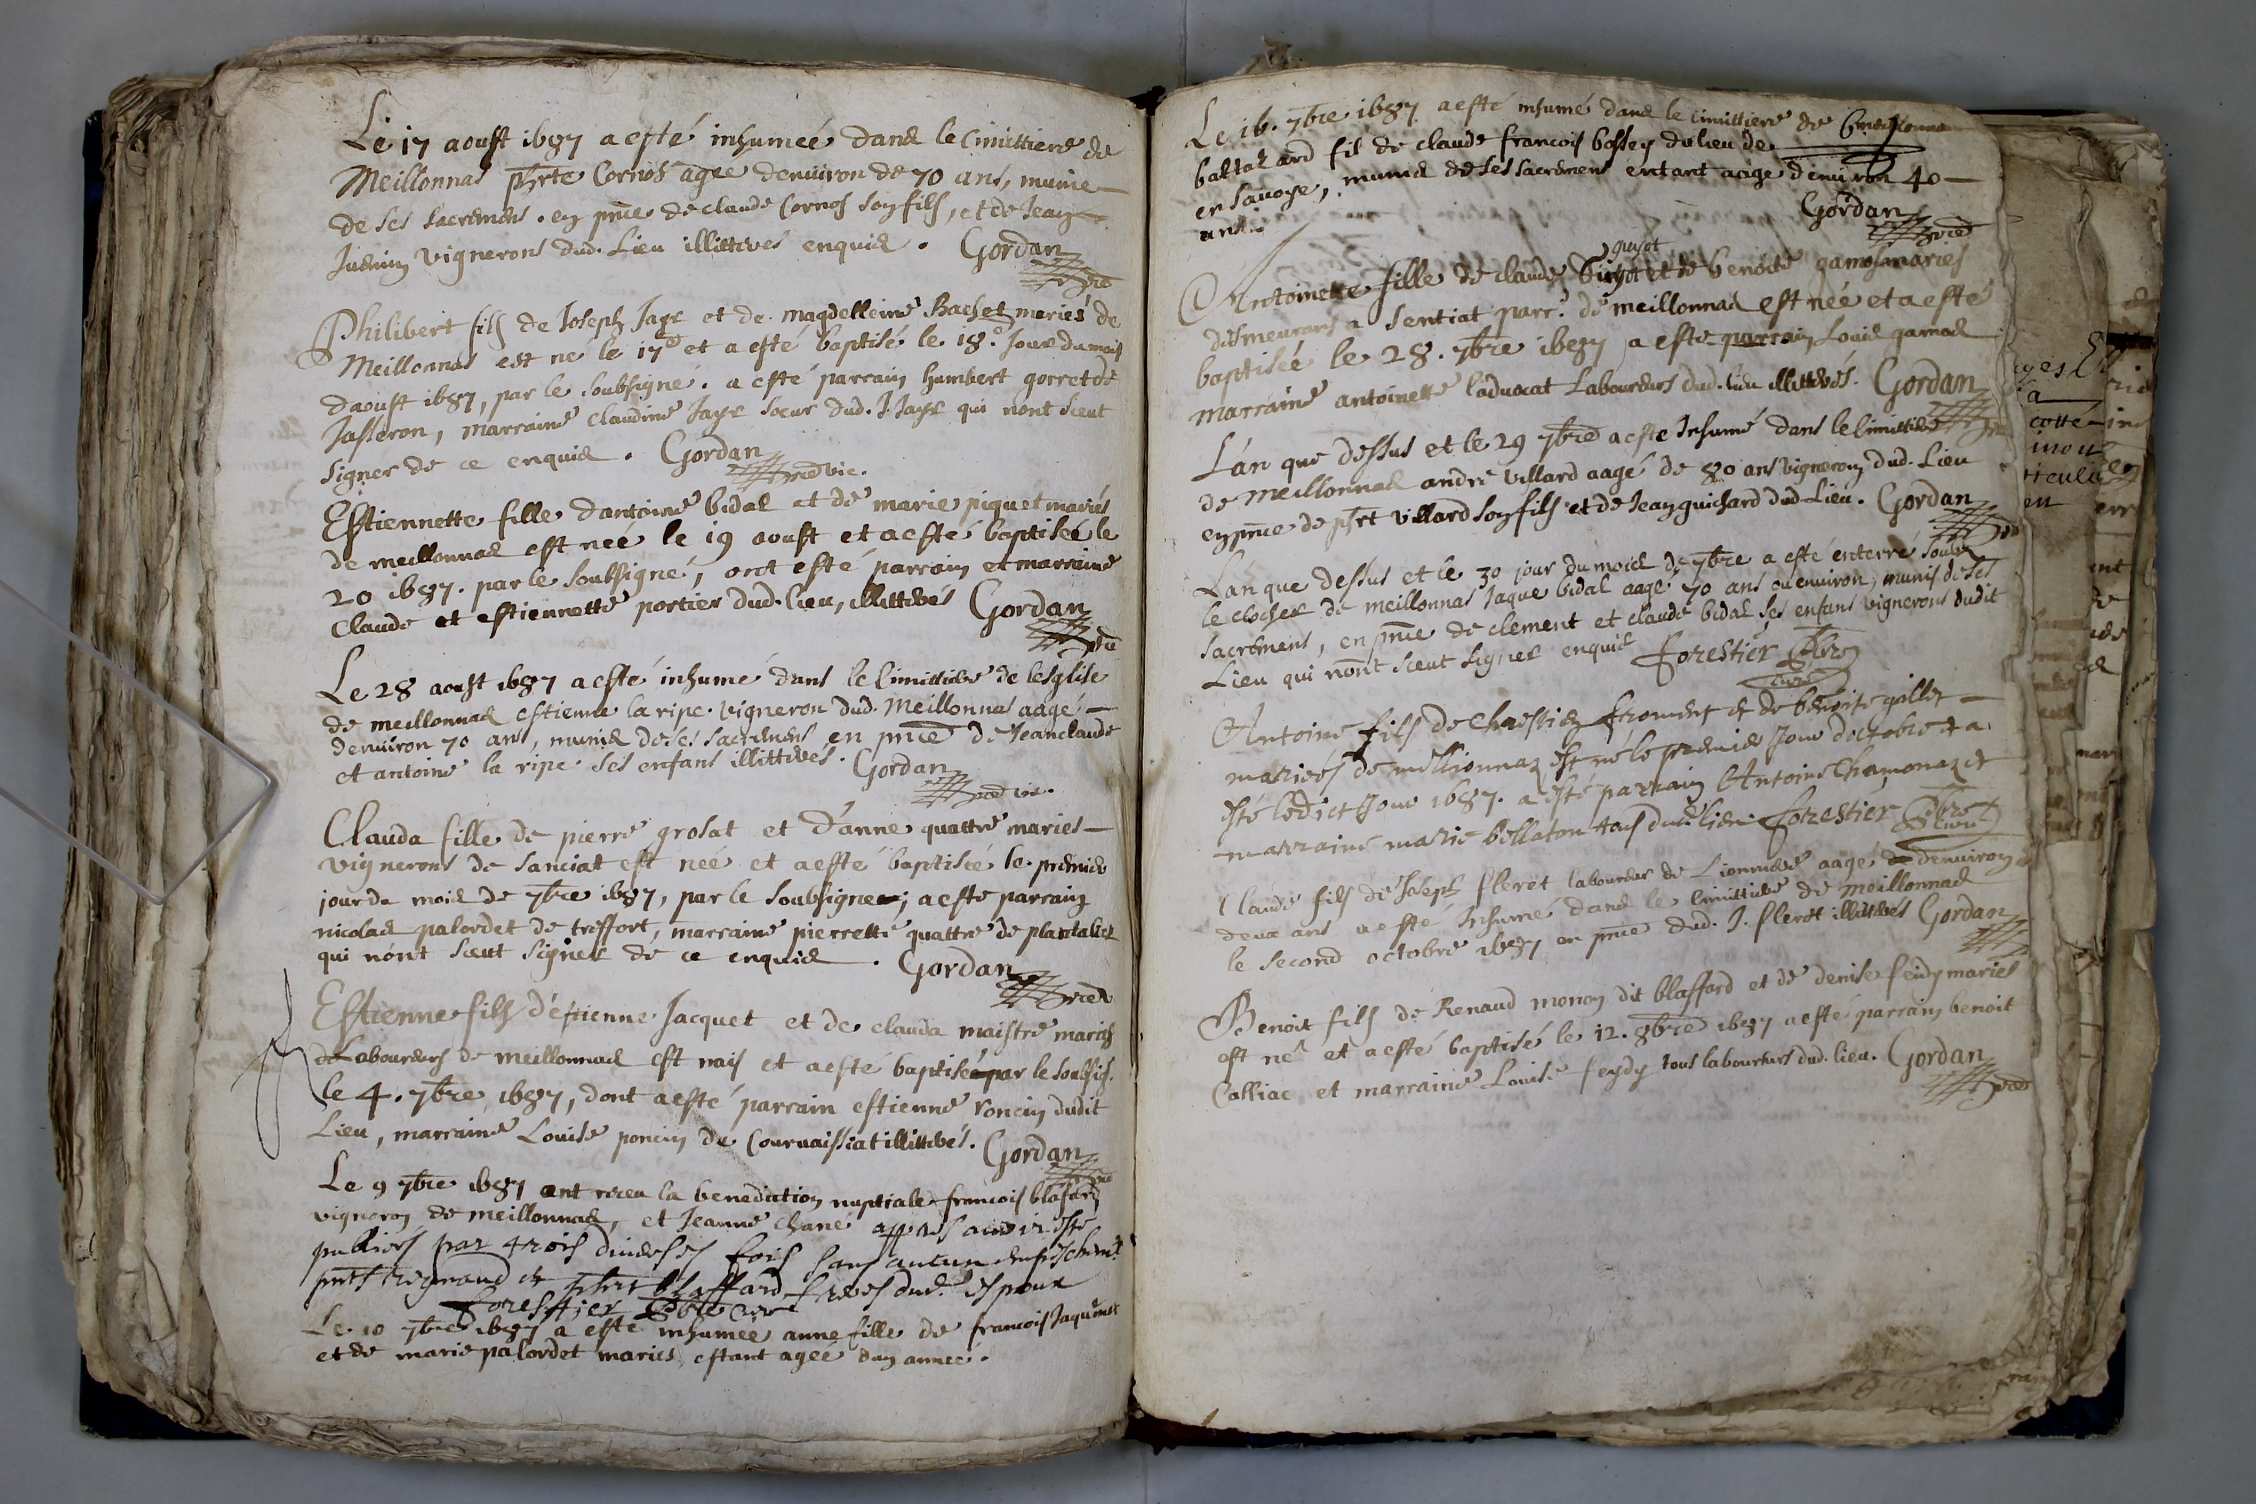 Le 17 aoust 1687 a esté inhumeé dans le Cimittiere de
Meillonnas phrte Cornos agee denuiron de 70 ans, munie
de ses sacremens . en pnce de claude Cornos son fils, et de Jean
vignerons dud. Lieu illitterés enquis . Gordan
Philibert fils de Joseph Jaye et de magdelleine Bachet mariés de
Meillonnas est né le 17e et a esté baptisé le 18e Jour du mois
daoust 1687, par le soubsigné . a esté parrain humbert gorret de
Jasseron, marraine Claudine Jaye soeur dud. J. Jaye qui nont sceut
signer de ce enquis . Gordan
vic.
Estiennette fille dantoine bidal et de marie piquet mariés
de meillonnas est neé le 19 aoust et a esté baptiseé le
20 1687. par le soubsigné, ont esté parrain et marraine
Claude et estiennette portier dud. lieu, illitterés Gordan
Le 28 aoust 1687 a esté inhumé dans le Cimittiere de lesglise
de meillonnas estienne la ripe vigneron dud. Meillonnas aagé
denuiron 70 ans, munis de ses sacremens en pnce de Jeanclaude
et antoine la ripe ses enfans illitterés. Gordan
vic.
Clauda fille de pierre grosat et d'anne quattre maries
vignerons de sanciat est neé et a esté baptiseé le premier
jour du mois de 7bre 1687, par le soubsigne; a esté parrain
nicolas palordet de treffort, marraine pierrette quattre de plantalier
qui nónt sceut signer de ce enquis . Gordan
Estienne fils d'éstienne Jacquet et de clauda maistre mariés
Laboureurs de meillonnas est nais et a esté baptisé par le soubsig.
le 4. 7bre 1687, dont a esté parrain estienne poncin dudit
Lieu, marraine Louise poncin de Courvaissiat illitterés. Gordan
Le 9 7bre 1687 ont receu la benediction nuptiale francois blafard
vigneron de meillonnas, et Jeanne chané appres auoir esté
publiés par trois diuerses fois sans aucun empeschemt
pnts regnaud et phrt blaffard freres dud. espoux
forestier pbre curé
Le 10 7bre 1687 a esté inhumeé anne fille de francois Jaquemet
et de marie palordet maries, estant ageé dun anneé.
Le 16. 7bre 1687 a esté inhumé dans le cimittiere de
baltazard fils de claude francois bossey du lieu de
en sauoye, munis de ses sacremens estant aage denviron 40
ans. Gordan
guyot
Antoinette fille de claude et de benoite gamos maries
demeurans a sentiat parr. de meillonnas est née et a esté
baptisée le 28. 7bre 1687 a esté parrain Louis gamos
marraine antoinette l'aduocat Laboureurs dud. lieu illitterés. Gordan
L'an que dessus et le 29 7bre a esté Inhumé dans le Cimittiere
de meillonnas andré villard aagé de 80 ans vigneron dud. Lieu
en pnce de phrt villard son fils et de Jean guichard dud Lieu. Gordan
Lan que dessus et le 30 jour du mois de 7bre a esté enterré soubz
le clocher de meillonnas Jaque bidal aagé 70 ans ou environ, munis de ses
sacremens, en pnce de clement et claude bidal ses enfans vignerons dudit
Lieu qui nónt sceut signer enquis forestier pbre
curé
Antoine fils de Chrestien froment et de benoite gillet
mariées de meillionnaz est né le premier Jour doctobre et a
esté ledict Jour 1687. a esté parrain Antoine Chamonaz et
marraine marie bellaton tous dud. lieu forestier pbre
curé
Claude fils de Joseph fleret laboureur de Lionniere aagé denuiron
deux ans a esté Inhumé dans le Cimittiere de meillonnas
le second octobre 1687 en pnce dud. J. fleret illitterés Gordan
Benoit fils de Renaud monon dit blaffard et de denise feidy maries
est né et a esté baptisé le 12. 8bre 1687 a esté parrain benoit
Calliac et marraine Louise feydy tous laboureurs dud. lieu. Gordan